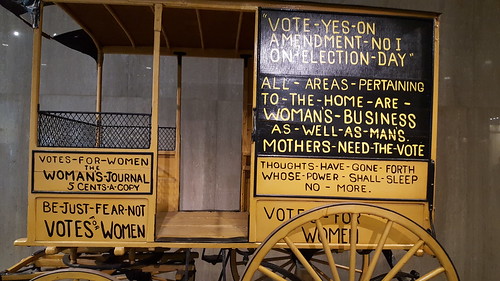 "VOTE-YES-ON
AMENDMENT-NO I
ON-ELECTION-DAY"
ALL-AREAS-PERTAINING
TO-THE-HOME-ARE-
WOMAN'S-BUSINESS
AS-WELL-AS-MAN'S.
MOTHERS-NEED-THE-VOTE
THOUGHTS-HAVE-GONE-FORTH
WHOSE-POWER-SHALL-SLEEP
NO-MORE.
VOTES FOR
WOMEN
VOTES-FOR-WOMEN
THE
WOMAN'S-JOURNAL
5 CENTS-A-COPY
BE-JUST-FEAR-NOT
VOTES FOR WOMEN